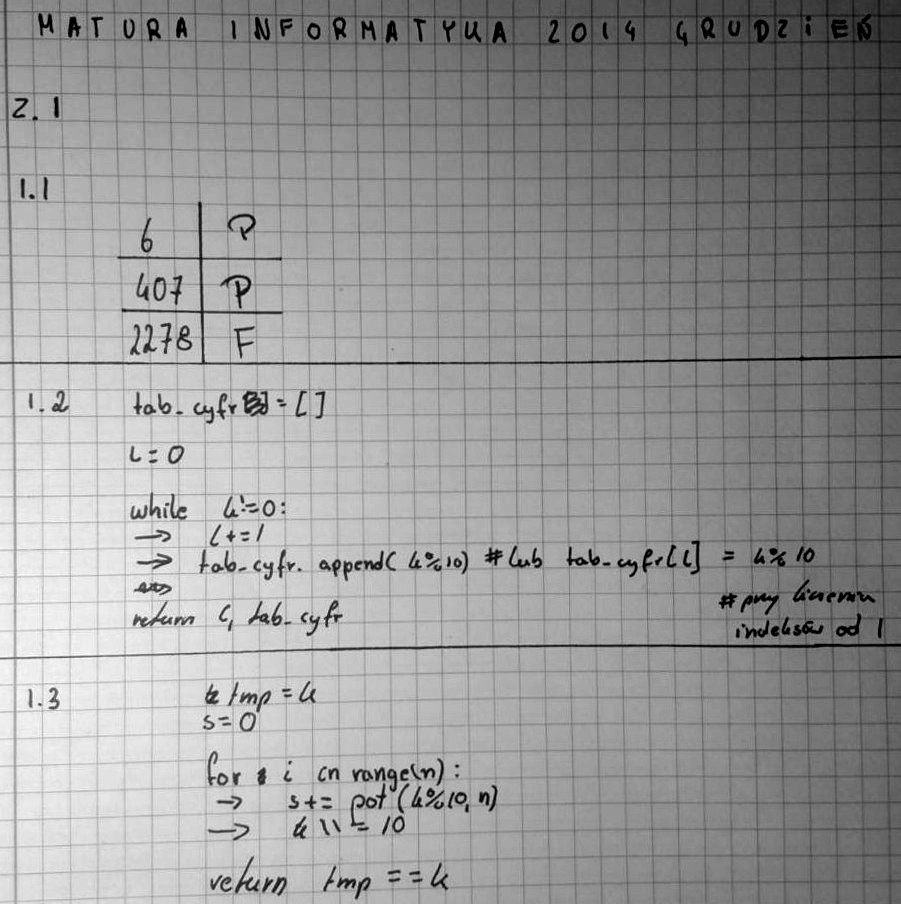 MATURA INFORMATYKA 2014 GRUDZiEŃ
Z. 1
1.1
6 P
407 P
2278 F
1.2 tab_cyfr = []
l = 0
while k != 0:
→ l += 1
→ tab_cyfr.append(k%10) # lub tab_cyfr[l] = k%10
# przy liczeniu
indeksów od 1
return l, tab_cyfr
1.3 tmp = k
s = 0
for i in range(n):
→ s += pot(k%10, n)
→ k \\ = 10
return tmp == k